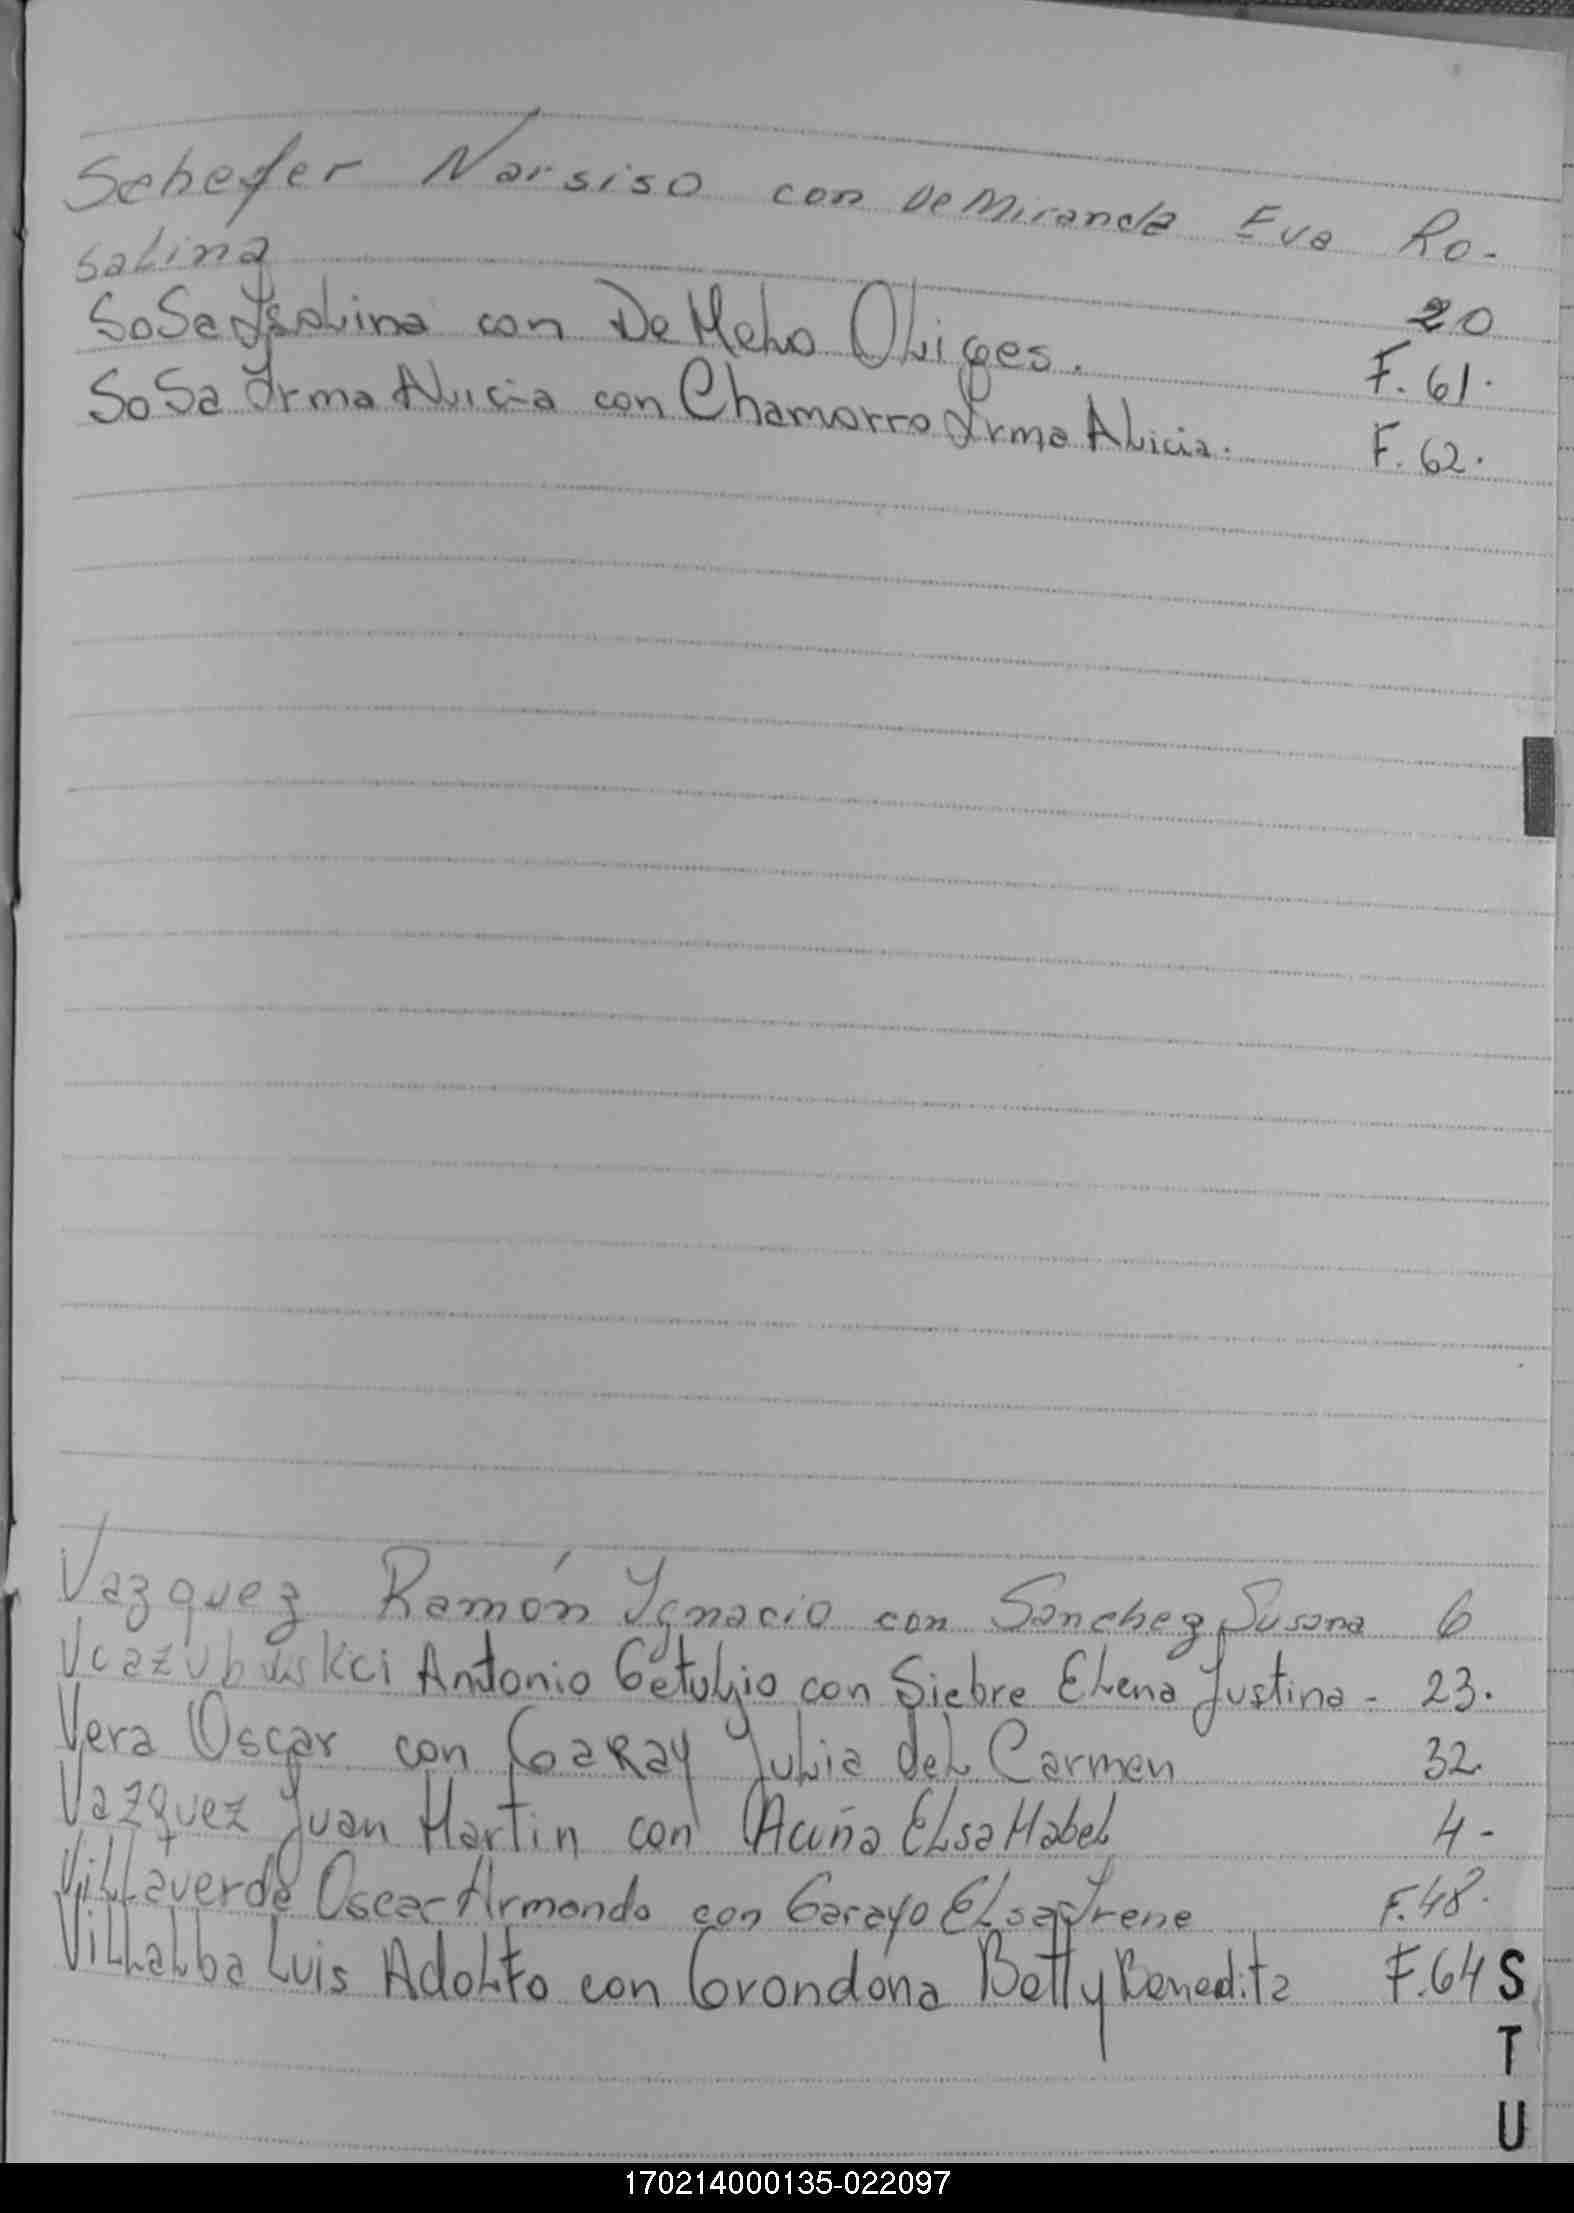 Schefer Narsiso con De Miranda Eva Ro-
salina 20
Sosa Ysolina con De Melo Oliges. F. 61.
Sosa Irma Alicia con Chamorro Irma Alicia. F. 62.
Vazquez Ramón Ygnacio con Sanchez Susana 6
Antonio Getulio con Siebre Elena Justina - 23.
Vera Oscar con Garay Julia del Carmen 32.
Vazquez Juan Martin con Acuña Elsa Mabel 4-
Villaverde Oscar Armando con Garayo Elsa Irene F. 48.
Villalba Luis Adolfo con Grondona Betty Benedita F. 64
S
T
U
170214000135-022097